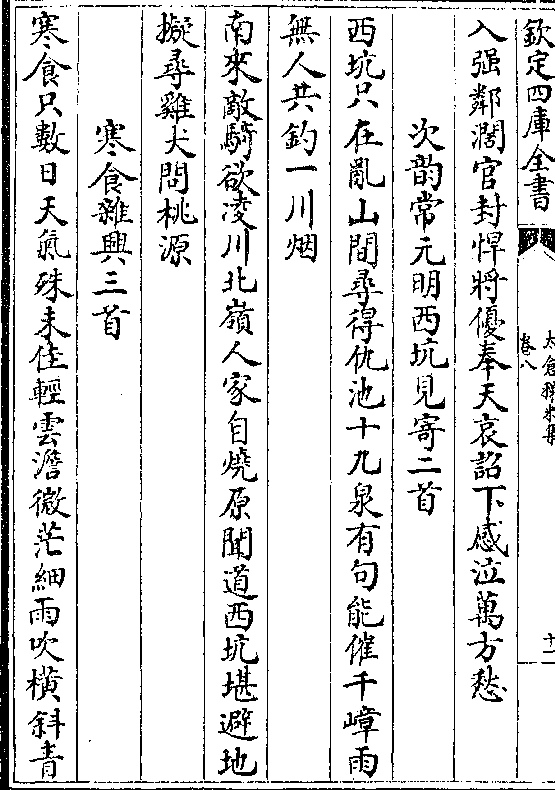 欽定四庫全書
太倉稊米集
卷八
十二
入强鄰濶官封悍將優奉天哀詔下感泣萬方愁
次韵常元明西坑見寄二首
西坑只在亂山間尋得仇池十九泉有句能催千嶂雨
無人共釣一川烟
南來敵騎欲凌川北嶺人家自燒原聞道西坑堪避地
擬尋雞犬問桃源
寒食雜興三首
寒食只數日天氣殊未佳輕雲澹微茫細雨吹横斜青